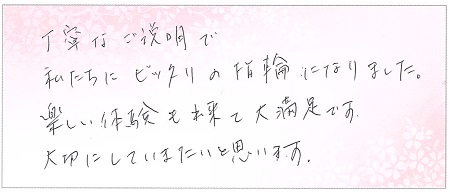 丁寧なご説明で
私たちにピッタリの指輪になりました。
楽しい体験も出来て大満足です
大切にしていきたいと思います。